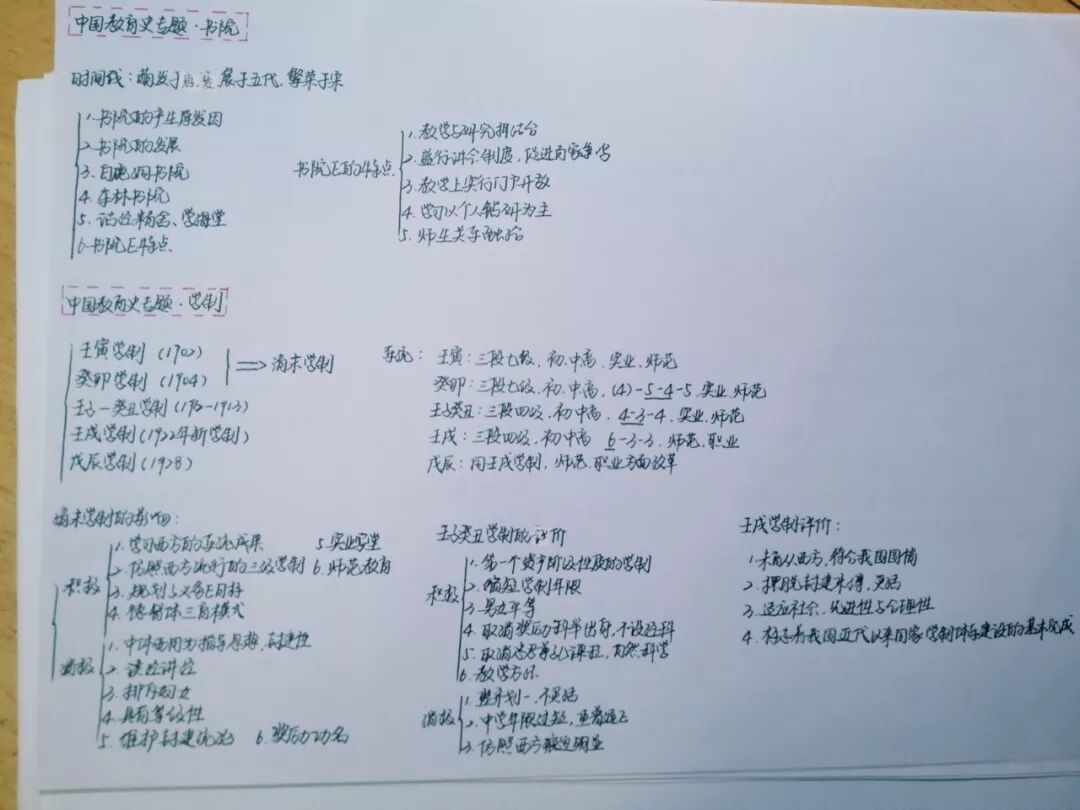 中国教育史专题·书院
时间线：萌发于唐，发展于五代，繁荣于宋
1.书院的产生原发因
2.书院的发展
3.白鹿洞书院
4.东林书院
5.诂经精舍、学海堂
6.书院E特点
书院E的4特点
1.教学与研究相结合
2.盛行讲会制度，促进百家争鸣
3.教学上实行门户开放
4.学习以个人钻研为主
5.师生关系融洽
中国教育史专题·学制
壬寅学制（1902）
癸卯学制（1904）
⟹清末学制
壬子—癸丑学制（1912-1913）
壬戌学制（1922年新学制）
戊辰学制（1928）
系统：壬寅：三段七级，初.中高.实业.师范
癸卯：三段七级，初.中高，(4)-5-4-5，实业.师范
壬子癸丑：三段四级，初中高，4-3-4，实业，师范
壬戌：三段四级，初中高 6-3-3，师范，职业
戊辰：同壬戌学制，师范，职业方面改革
清末学制的影响：
积极
1.学习西方的系统成果
2.仿照西方流行的三级学制
3.规划了义务E目标
4.德智体三育模式
5.实业学堂
6.师范教育
消极
1.中体西用为指导思想，封建性
2.读经讲经
3.排斥妇女
4.具有等级性
5.维护封建统治
6.奖励功名
壬子癸丑学制的评价
积极
1.第一个资产阶级性质的学制
2.缩短学制年限
3.男女平等
4.取消奖励科举出身，不设经科
5.取消忠君尊孔课程，自然科学
6.教学方法
消极
1.整齐划一，不灵活
2.中学年限过短，重普通
3.仿照西方
壬戌学制评价：
1.来自从西方，符合我国国情
2.摆脱封建束缚，灵活
3.适应社会，先进性与合理性
4.标志着我国近代以来国家学制体系建设的基本完成